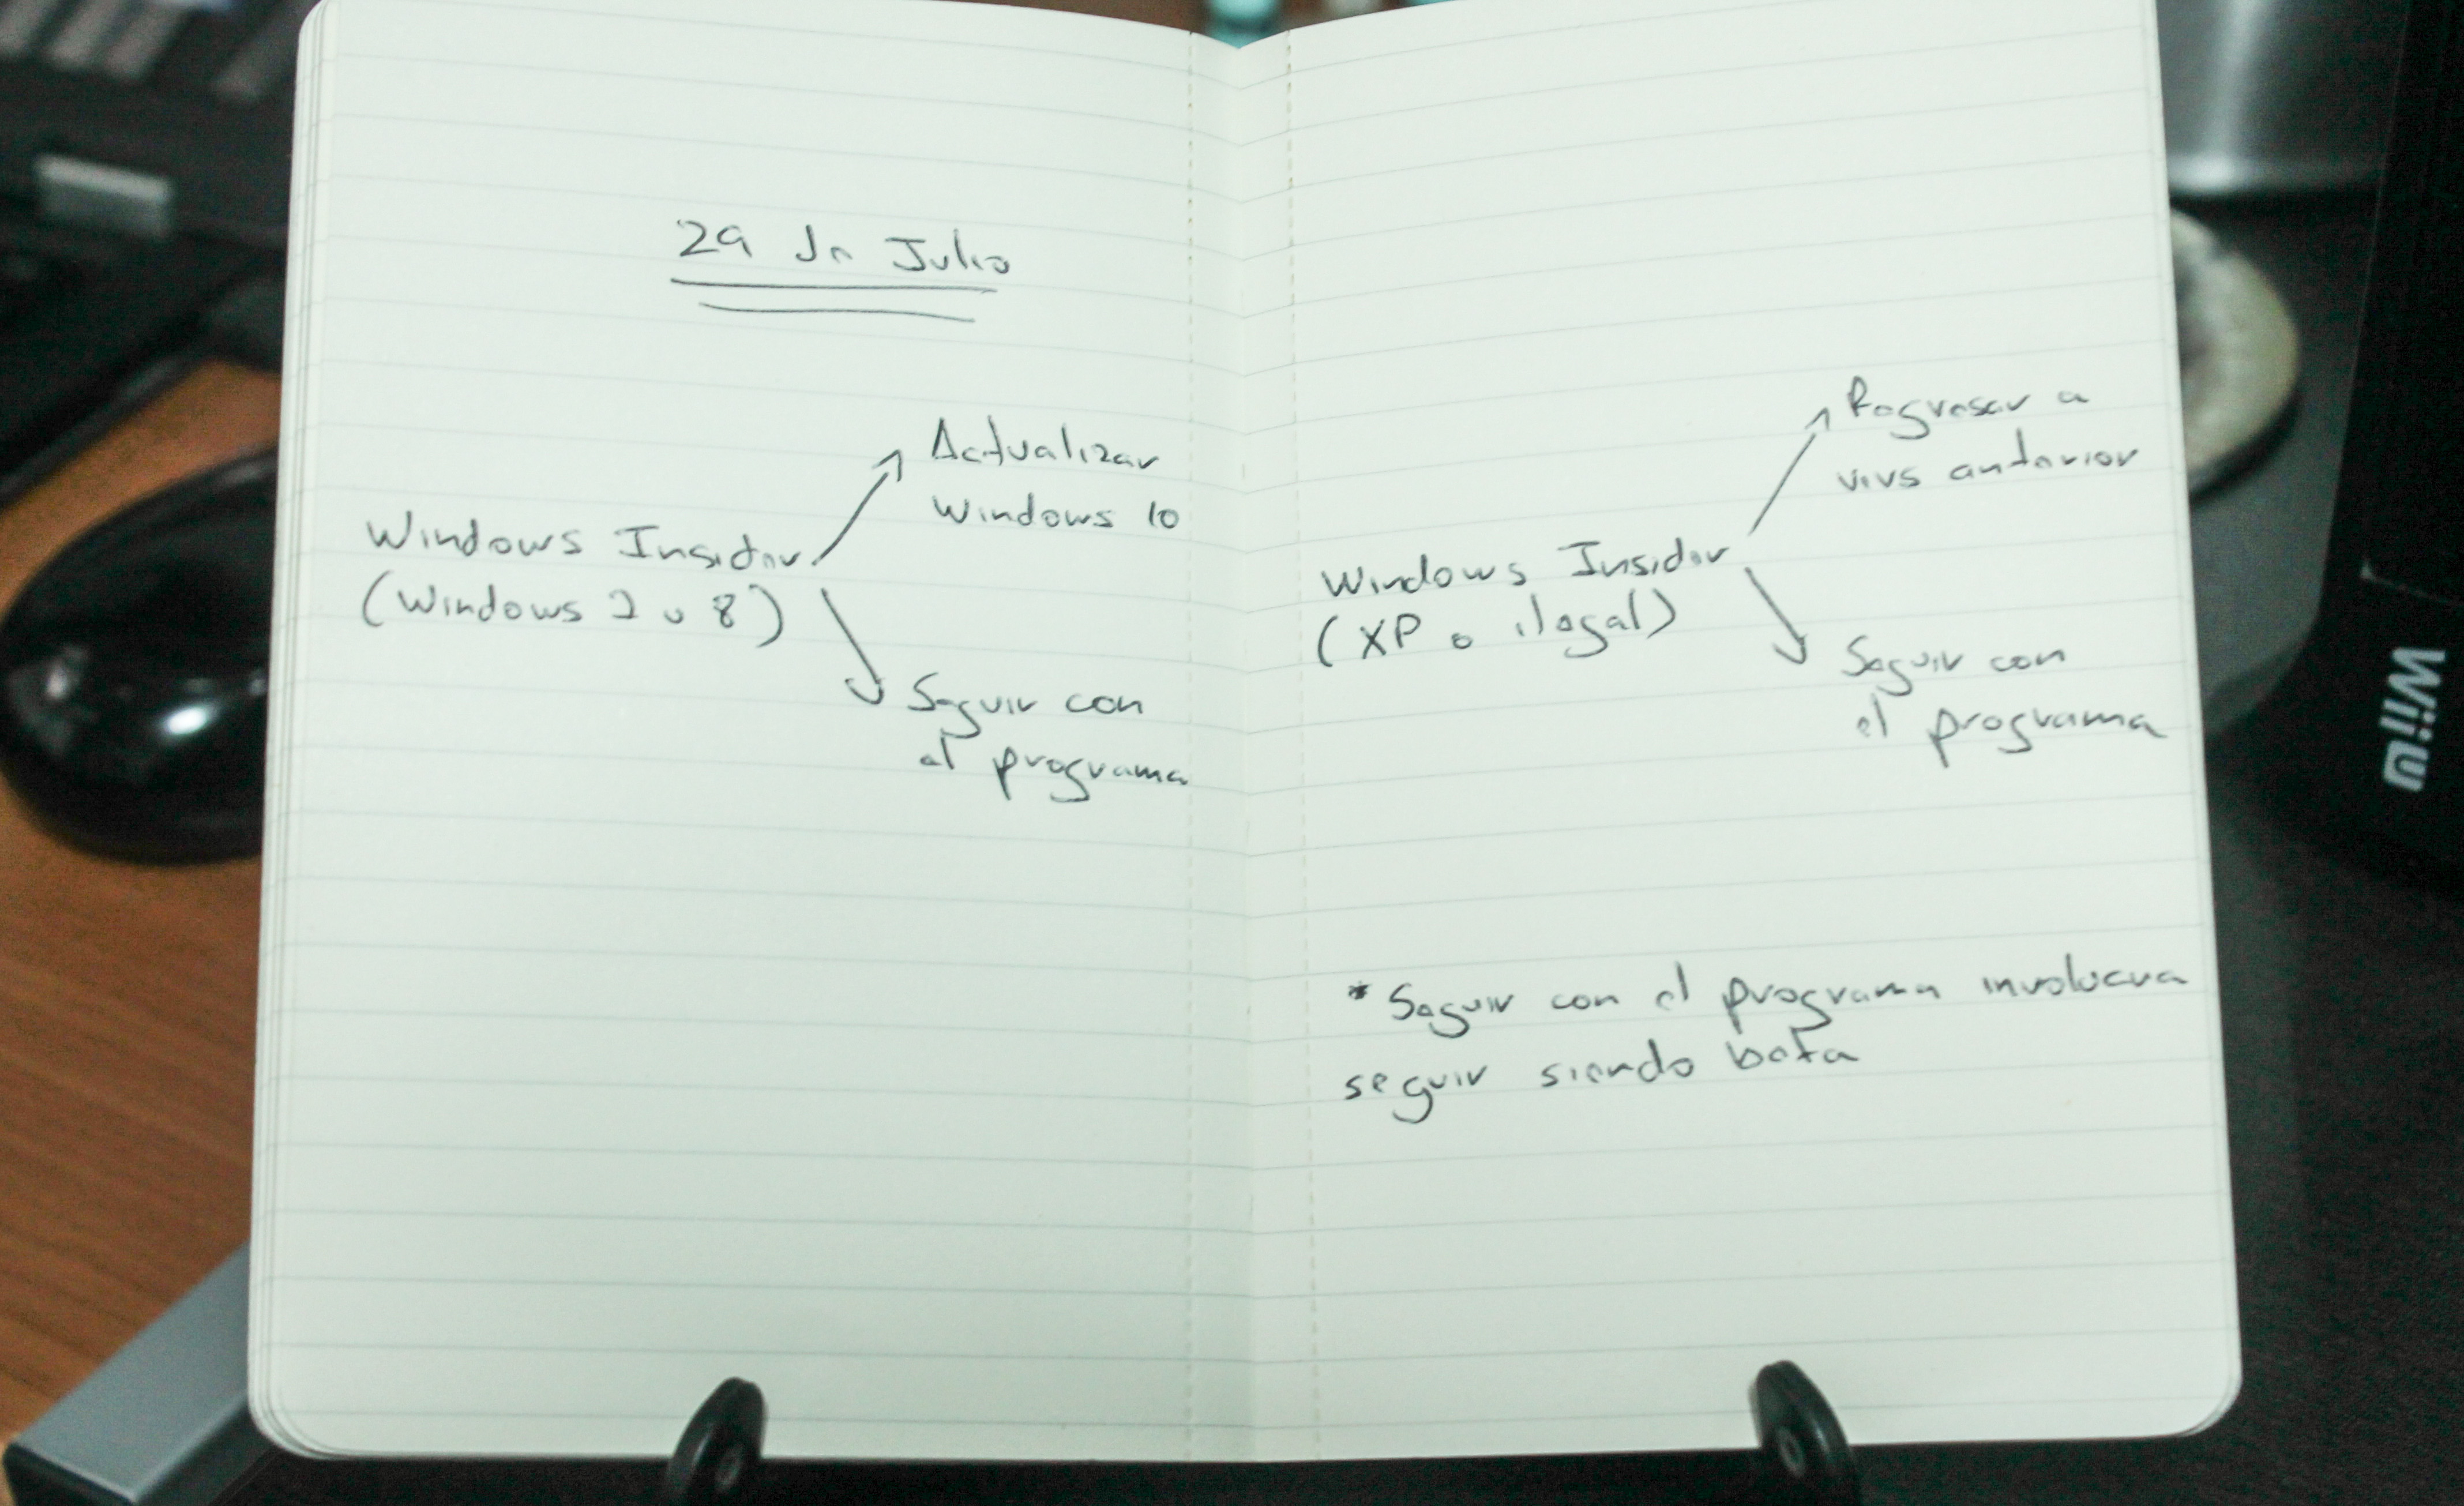 29 de Julio
Actualizar
Windows 10
Windows Insider
(Windows 7 u 8)
Seguir con
el programa
Regresar a
vers anterior
Windows Insider
(XP o ilegal)
Seguir con
el programa
* Seguir con el programa involucra
seguir siendo beta
WiiU